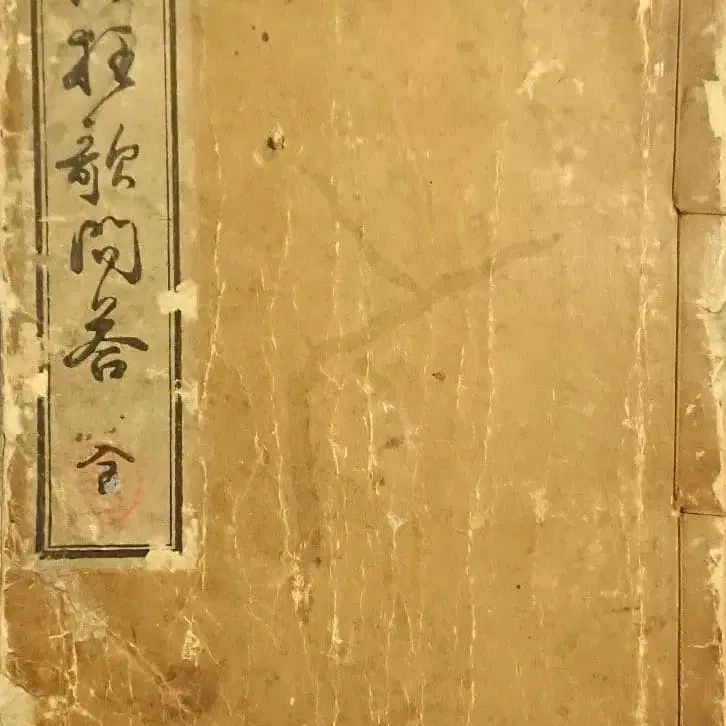 狂歌問答
全